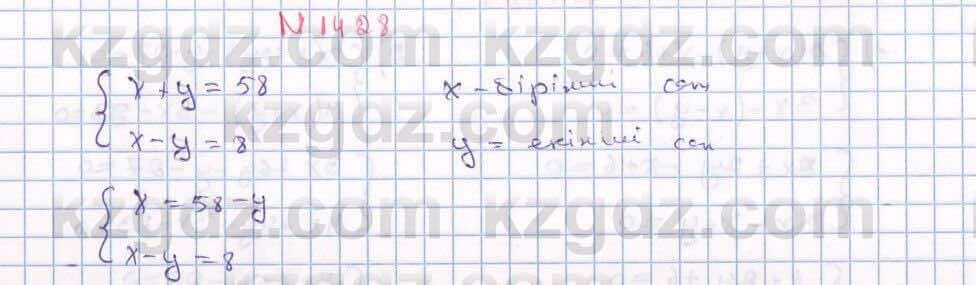 N 1428
x + y = 58 x - бірінші сан
x - y = 8 y = екінші сан
x = 58 - y
x - y = 8
kzgdz.com kzgdz.com
kzgdz.com
kzgdz.com kzgdz.com